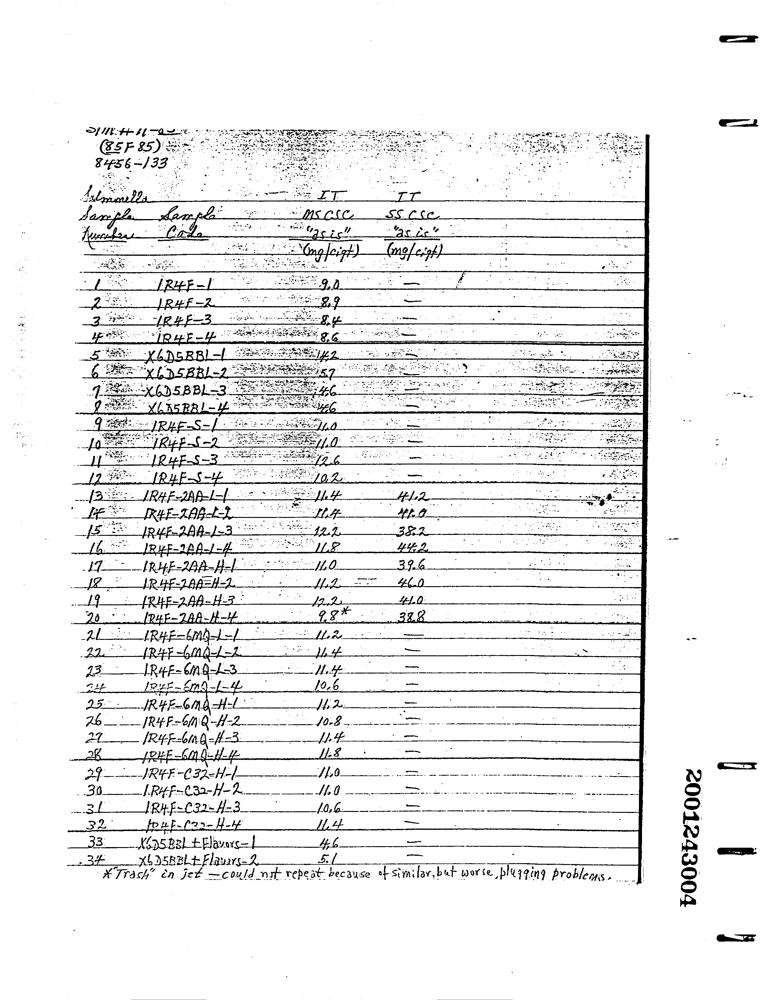 (85F85)
8456-133
Salmonella IT IT
Sample Sample MS CSC SS CSC
Number Code "as is" "as is"
(mg/cigt) (mg/cigt)
1 1R4F-1 9.0 —
2 1R4F-2 8.9 —
3 1R4F-3 8.4 —
4 1R4F-4 8.6 —
5 X6D5BBL-1 —
6 X6D5BBL-2 —
7 X6D5BBL-3 4.6 —
8 X6D5BBL-4 4.6 —
9 1R4F-S-1 11.0 —
10 1R4F-S-2 11.0 —
11 1R4F-S-3 12.6 —
12 1R4F-S-4 10.2 —
13 1R4F-2AA-L-1 11.4 41.2
14 1R4F-2AA-L-2 11.4 41.0
15 1R4F-2AA-L-3 12.2 38.2
16 1R4F-2AA-L-4 11.8 44.2
17 1R4F-2AA-H-1 11.0 39.6
18 1R4F-2AA-H-2 11.2 46.0
19 1R4F-2AA-H-3 12.2 41.0
20 1R4F-2AA-H-4 9.8* 38.8
21 1R4F-6MQ-L-1 11.2 —
22 1R4F-6MQ-L-2 11.4 —
23 1R4F-6MQ-L-3 11.4 —
24 1R4F-6MQ-L-4 10.6 —
25 1R4F-6MQ-H-1 11.2 —
26 1R4F-6MQ-H-2 10.8 —
27 1R4F-6MQ-H-3 11.4 —
28 1R4F-6MQ-H-4 11.8 —
29 1R4F-C32-H-1 11.0 —
30 1R4F-C32-H-2 11.0 —
31 1R4F-C32-H-3 10.6 —
32 1R4F-C32-H-4 11.4 —
33 X6D5BBL+Flavors-1 4.6 —
34 X6D5BBL+Flavors-2 5.1 —
*"Trash" in jet — could not repeat because of similar, but worse, plugging problems.
2001243004